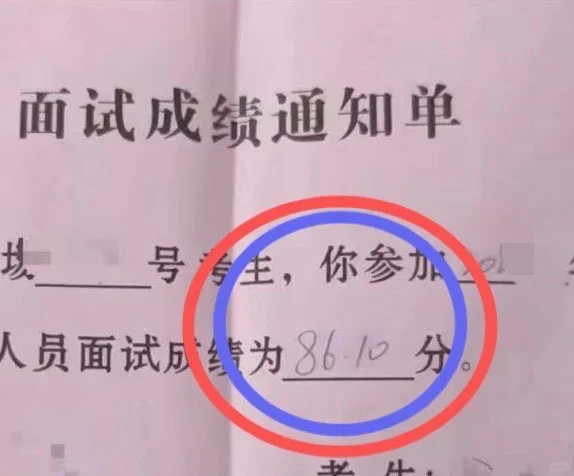 面试成绩通知单
号考生，你参加
人员面试成绩为86.10分。
考生：